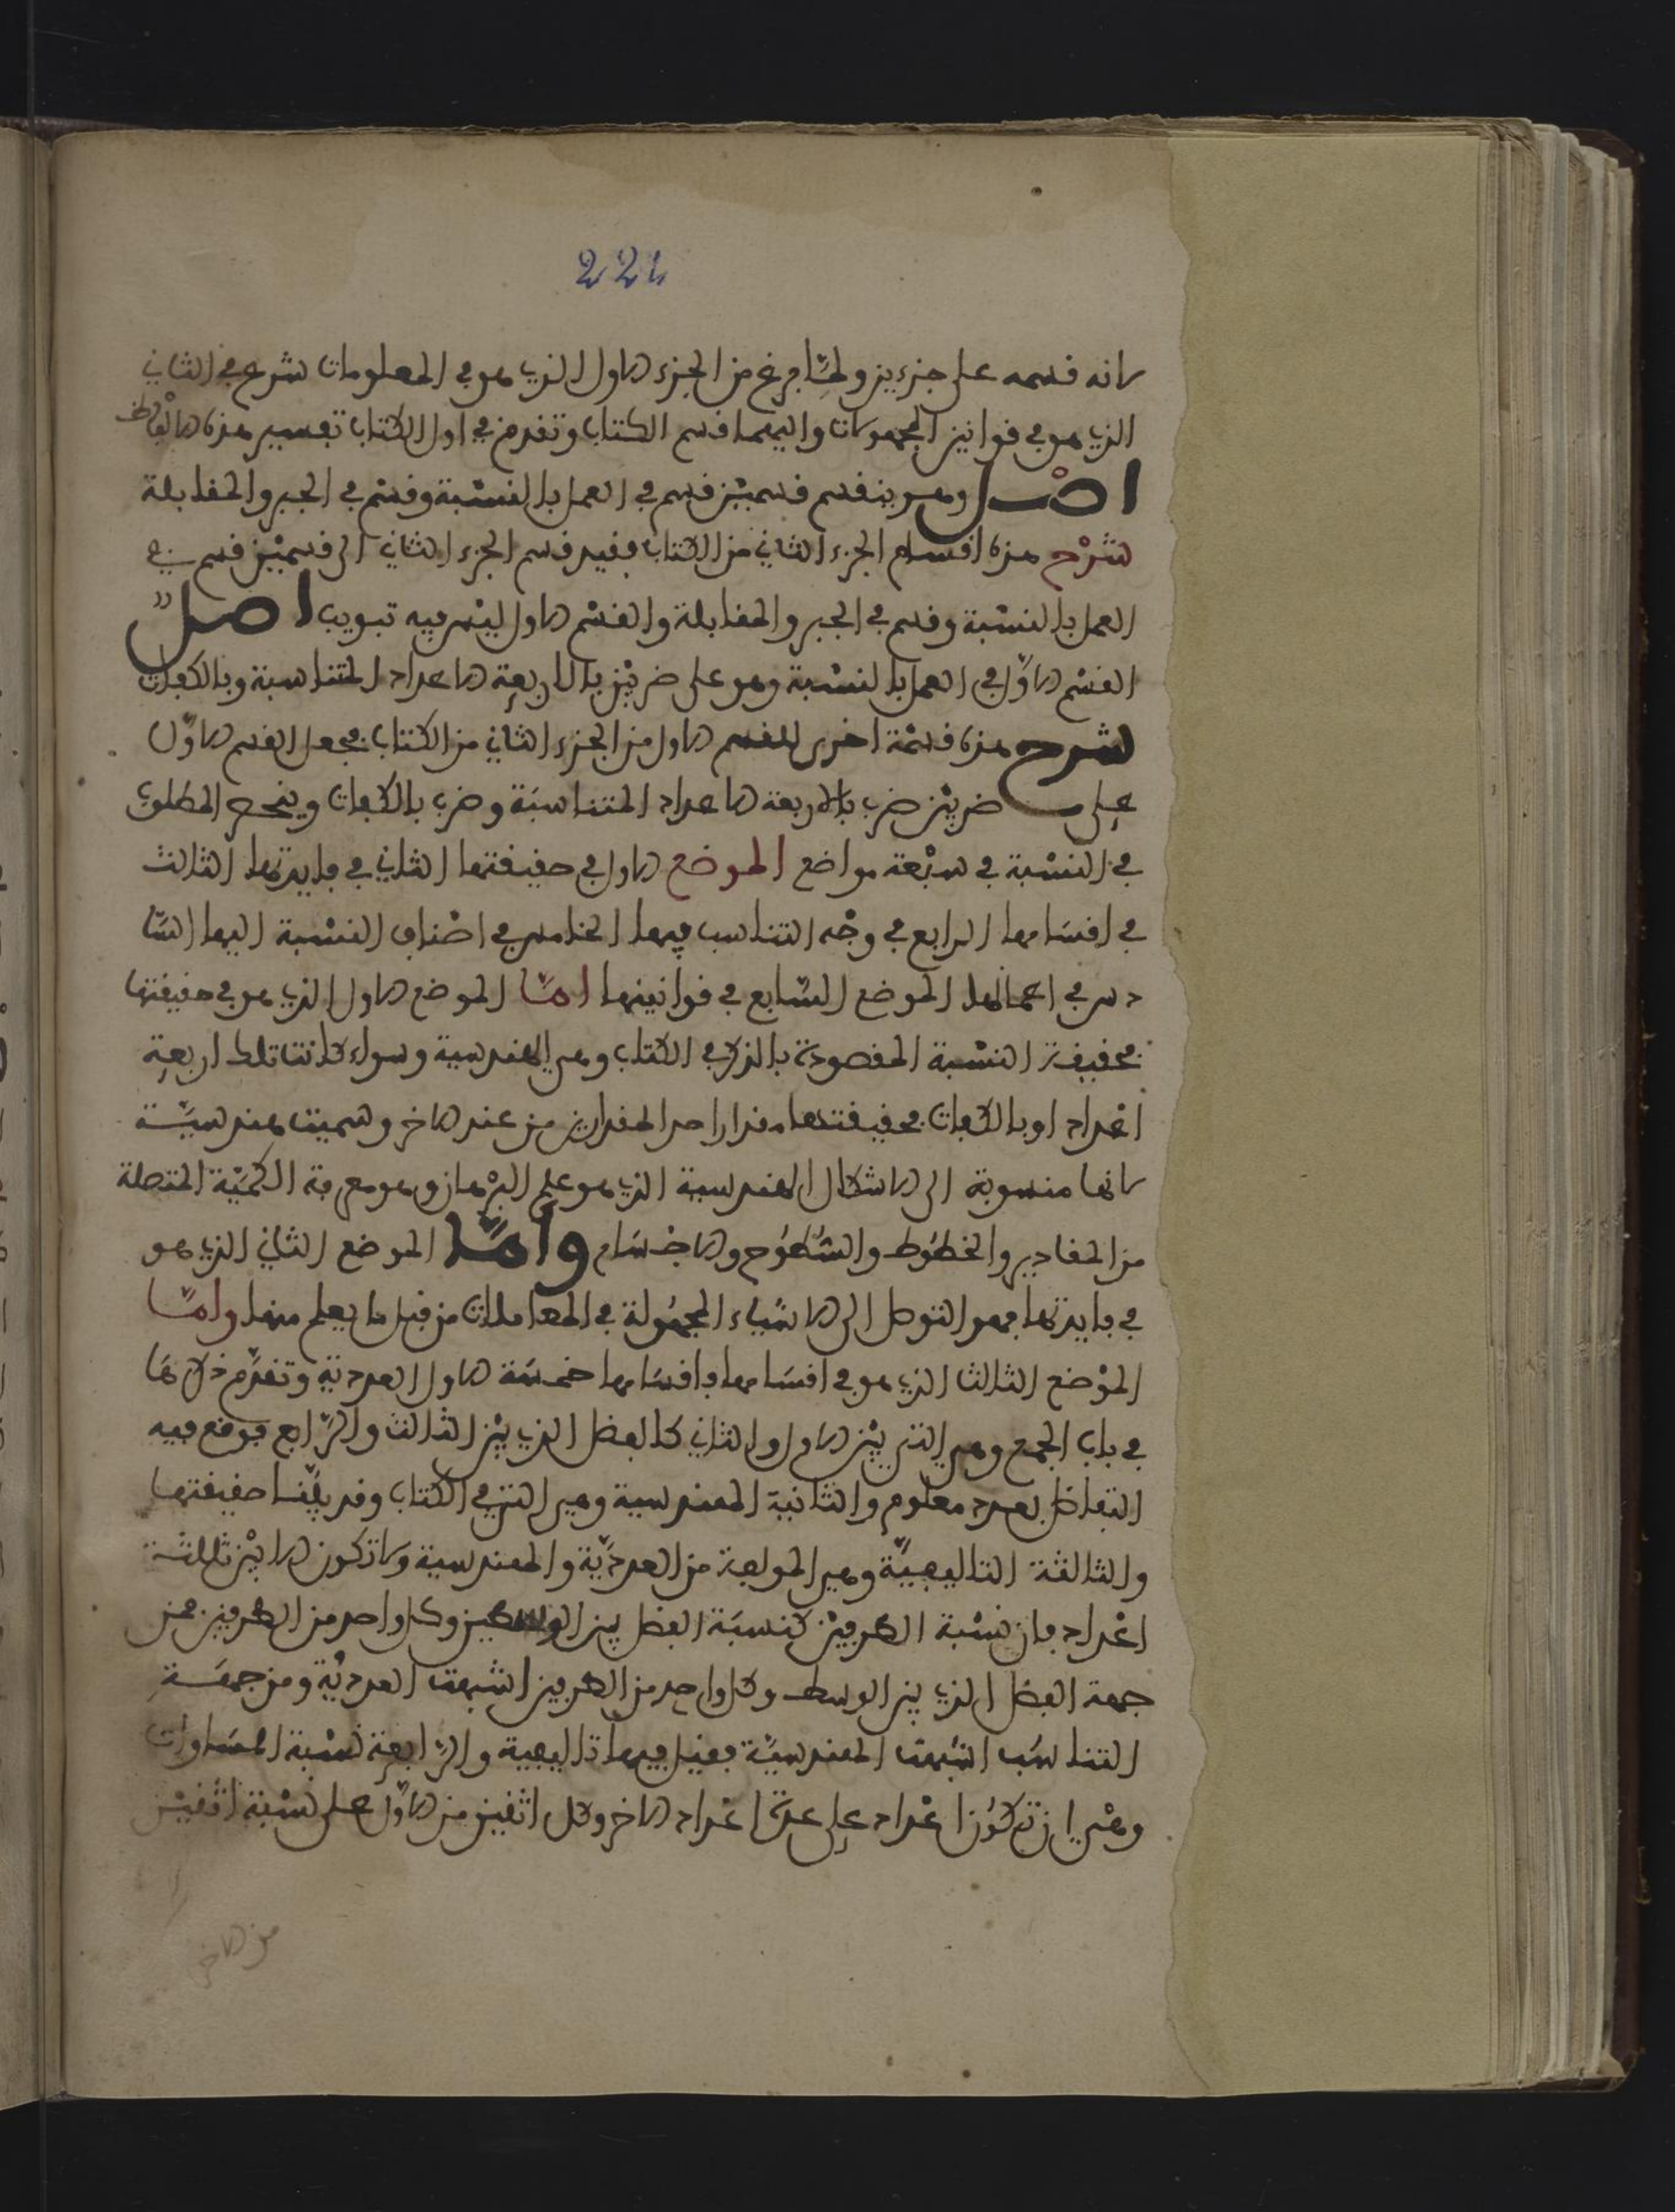 221
لانه قسمه على جزءين ولمّا فرغ من الجزء الاول الذي هو في المعلومات شرع في الثاني
الذي هو في قوانين المجهولات واليهما قسم الكتاب وتقدم في اول الكتاب تفسير هذه الالفاظ
اصْل وهو ينقسم قسمين قسم في العمل بالنسْبة وقسْم في الجبر والمقابلة
شرْح هذه اقسام الجزء الثاني من الكتاب ففيه قسم الجزء الثاني الى قسمين قسم في
العمل بالنسْبة وقسم في الجبر والمقابلة والقسْم الاول ليْس فيه تبويب اصل
القسْم الاوّل في العمل بالنسْبة وهو على ضربيْن بالاربعة الاعداد المتناسبة وبالكفات
شرح هذه قسْمة اخرى للقسم الاول من الجزء الثاني من الكتاب فجعل القسم الاوّل
على ضربيْن ضرب بالاربعة الاعداد المتناسبَة وضرب بالكفات وينحصر المطلوب
في النسْبة في سبْعة مواضع الموضع الاول في حقيقتها الثاني في فايدتها الثالث
في اقسَامها الرابع في وجْه التناسب فيها الخامس في اصْناف النسْبة اليها السّا
دس في اعمالها الموضع السّابع في قوانينها امّا الموضع الاول الذي هو في حقيقتها
فحقيقة النسْبة المقصودة بالذكر في الكتاب وهي الهندسية وسواء كانت تلك اربعة
اعْداد او بالكفات فحقيقتها مقدار احد المقدارين من عند الاخر وسميت هندسيّة
لانها منسوبة الى الاشكال الهندسية الذي هو علم البرْهان وهو معرفة الكميّة المتصلة
من المقادير والخطُوط والسُّطُوح والاجْسَام وامّا الموضع الثاني الذي هو
في فايدتها فهو التوصل الى الاشيَاء المجهُولة في المعاملات من قبل ما يعلم منها وامّا
الموْضع الثالث الذي هو في اقسَامها فاقسَامها خمسَة الاول العددية وتقدّم ذكرهَا
في باب الجمع وهي التي بيْن الاول والثاني كالفضل الذي بيْن الثالث والرّابع فوقع فيه
التفاضل بعدد معلوم والثانية الهندسية وهي التي في الكتاب وقد بيّنا حقيقتها
والثالثة التاليفيّة وهي المولفة من العدديّة والهندسية ولا تكون الا بيْن ثلاثة
اعْداد فان نسْبة الطرفيْن كنسبَة الفضل بين الوسطين وكل واحد من الطرفين فمن
جهة الفضل الذي بين الوسط وكل واحد من الطرفين اشبهت العدديّة ومن جهَة
التناسُب اشبَهت الهندسيّة فقيل فيها تاليفية والرّابعة نسْبة المسَاوات
وهْي ان تكُون اعْداد على عدة اعْداد الاخر وكل اثنين من الاوّل على نسْبة اثنيْن
من الاخر